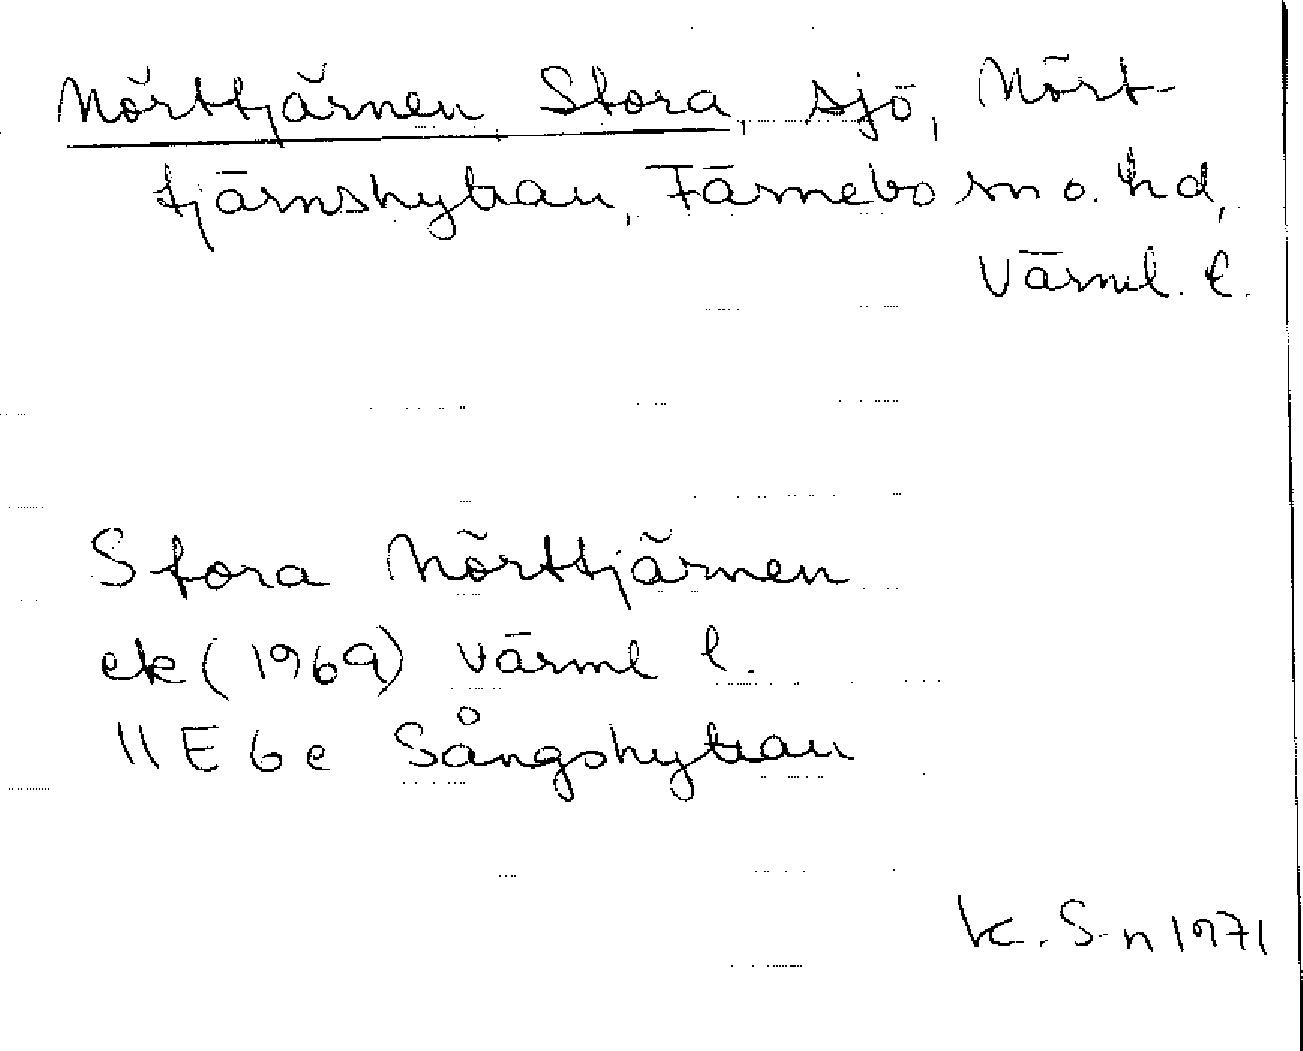 Mörttjärnen Stora, sjö, Mört-
tjärnshyttan, Färnebo sn o. hd,
Värml. l.
Stora Mörttjärnen
ek (1969) Värml l.
11 E 6 e Sångshyttan
K. S-n 1971